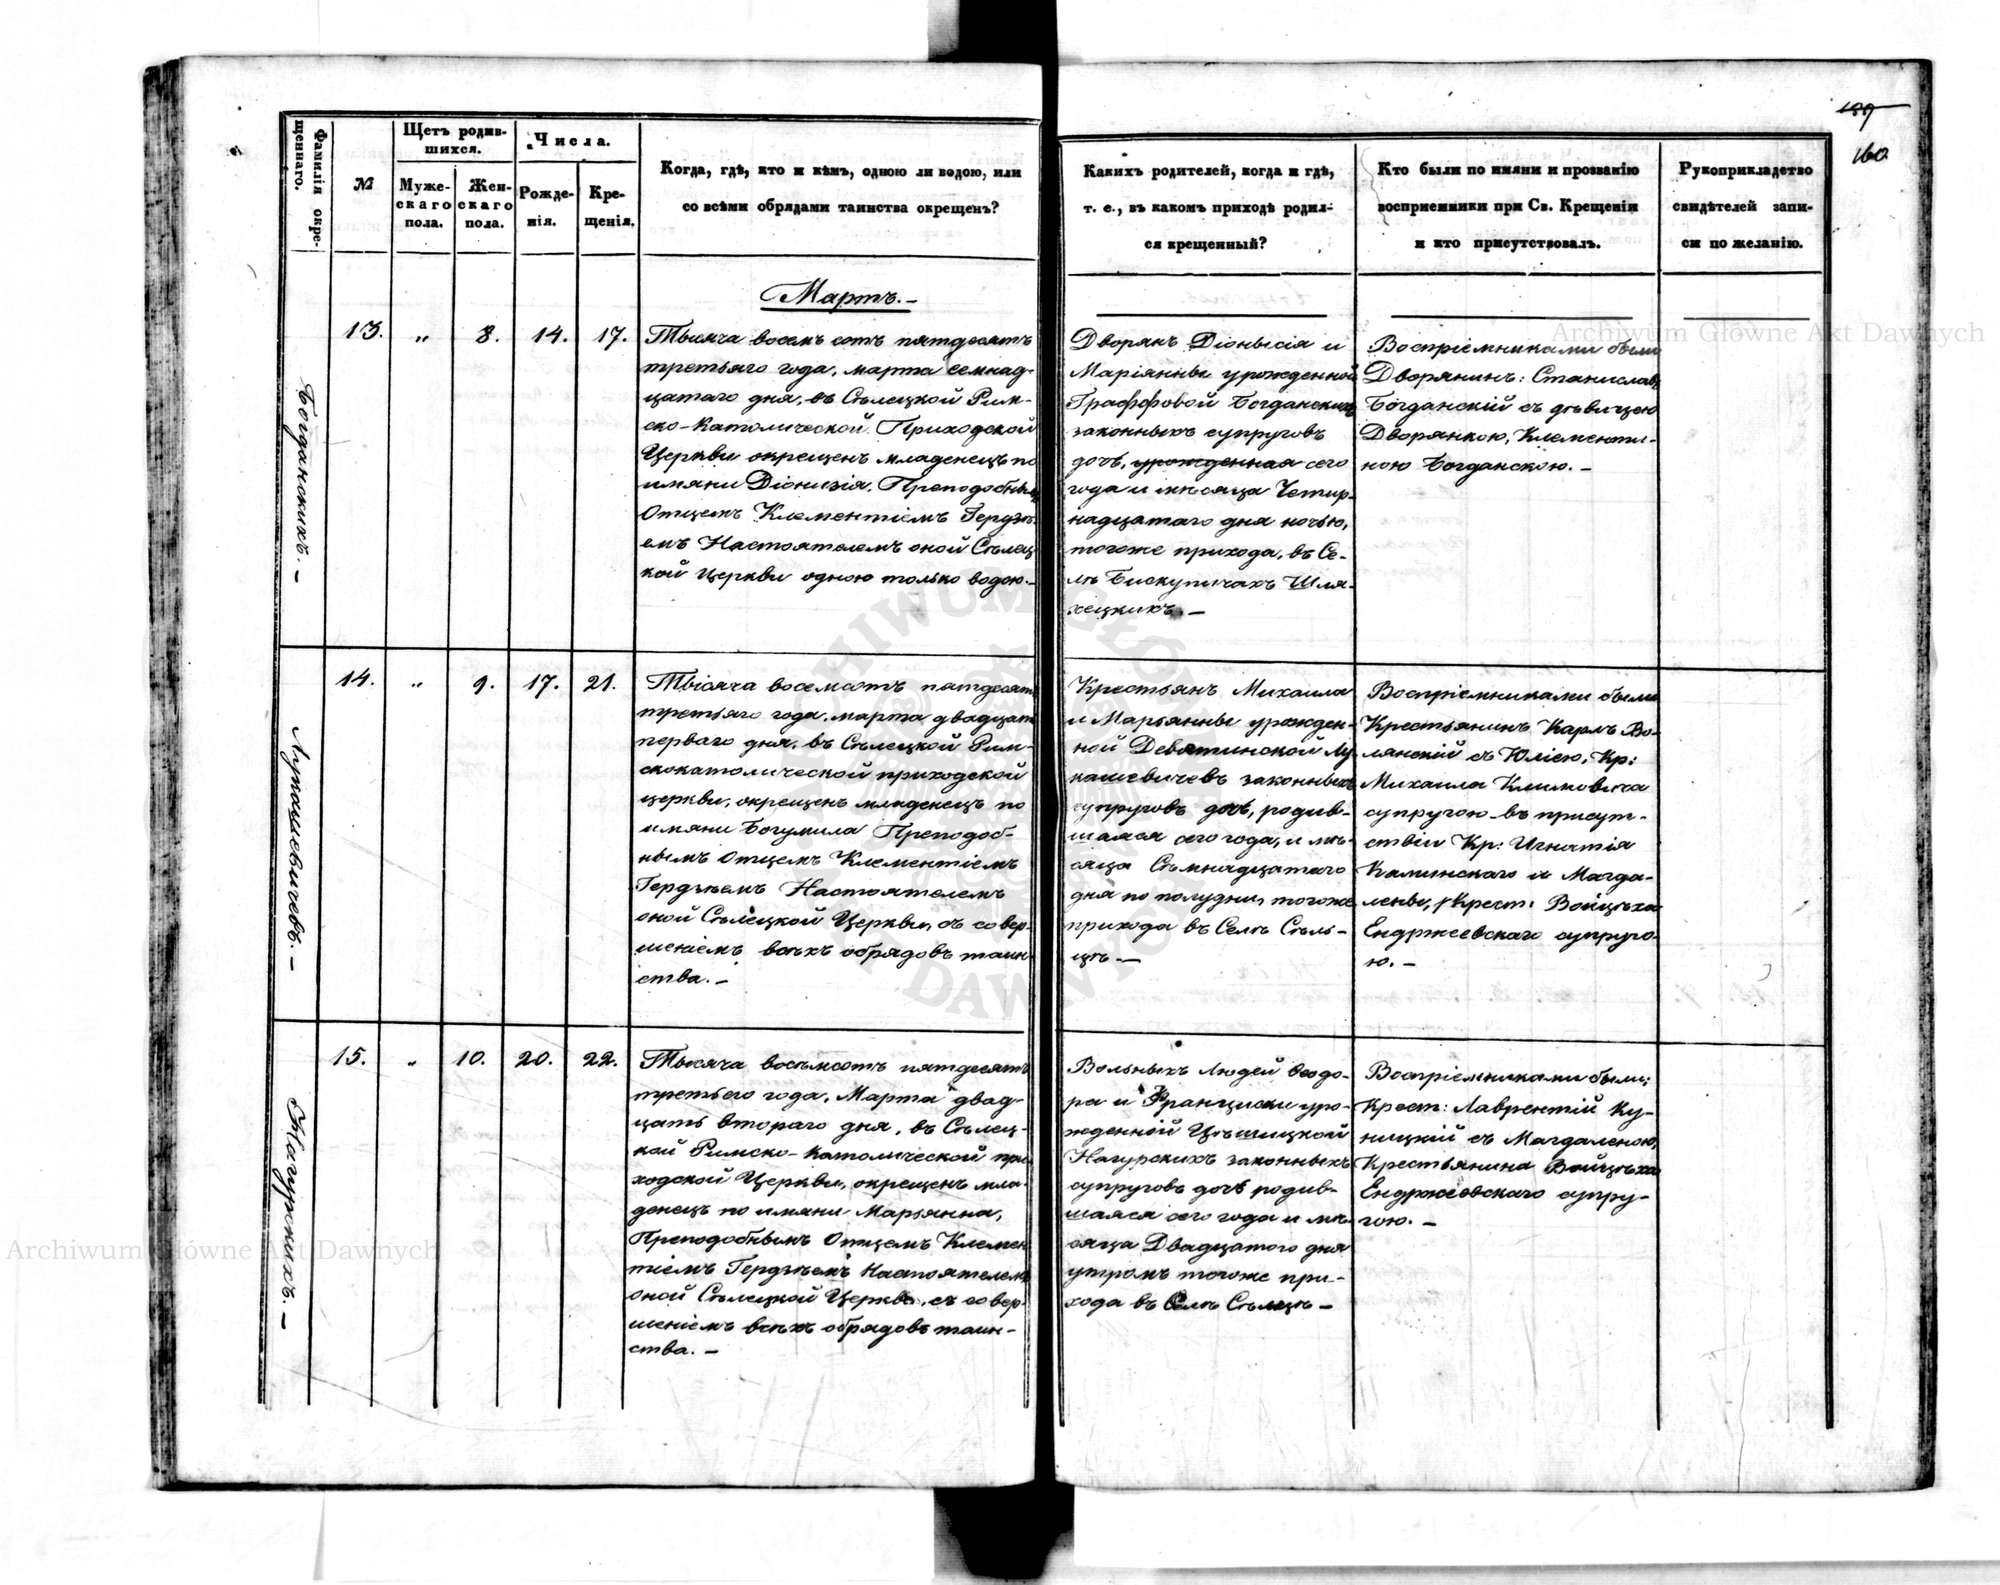 Фамилія окре-
щеннаго.
№
Щетъ родив-
шихся.
Муже-
скаго
пола.
Жен-
скаго
пола.
Числа.
Рожде-
нія.
Кре-
щенія.
Когда, гдѣ, кто и кѣмъ, одною ли водою, или
со всѣми обрядами таинства окрещенъ?
Какихъ родителей, когда и гдѣ,
т. е., въ какомъ приходѣ родил-
ся крещенный?
Кто были по имяни и прозванію
восприемники при Св. Крещеніи
и кто присутствовалъ.
Рукоприкладство
свидѣтелей запи-
си по желанію.
159
160.
Мартъ.—
Богданскихъ.—
13. „ 8. 14. 17.
Тысяча восемъ сотъ пятдесятъ
третьяго года, марта семнад-
цатаго дня, въ Сѣлецкой Рим-
ско-Католической Приходской
Церкви окрещенъ младенецъ по
имяни Діонизія, Преподобнымъ
Отцемъ Клементіемъ Гердзѣ-
емъ Настоятелемъ оной Сѣлец-
кой Церкви одною только водою.—
Дворянъ Діонысія и
Маріянны урожденной
Граффовой Богданскихъ
законныхъ супруговъ
дочь, урожденная сего
года и мѣсяца Четир-
надцатаго дня ночью,
тогоже прихода, въ Се-
лѣ Бискупичахъ Шля-
хецкихъ.—
Воспріемниками были
Дворянинъ: Станиславъ
Богданскій съ дѣвицею
Дворянкою, Клементи-
ною Богданскою.—
Лукашевичевъ.—
14. „ 9. 17. 21.
Тысяча восемсотъ пятдесятъ
третьяго года, марта двадцать
перваго дня, въ Сѣлецкой Рим-
скокатолической приходской
церкви, окрещенъ младенецъ по
имяни Богумила Преподоб-
нымъ Отцемъ Клементіемъ
Гердзѣемъ Настоятелемъ
оной Сѣлецкой Церкви, съ совер-
шеніемъ всѣхъ обрядовъ таин-
ства.—
Крестьянъ Михаила
и Марьянны урожден-
ной Девятинской Лу-
кашевичевъ законныхъ
супруговъ дочь, родив-
шаяся сего года, и мѣ-
сяца Сѣмнадцатаго
дня по полудни, тогоже
прихода въ Селѣ Сѣль-
цѣ.—
Воспріемниками были
Крестьянинъ Карлъ Во-
лянскій съ Юліею, Кр:
Михаила Климовича
супругою въ присут-
ствіи Кр: Игнатія
Калинскаго и Магда-
лены, Крест: Войцѣха
Ендржеевскаго супруго-
ю.—
Нагурскихъ.—
15. „ 10. 20. 22.
Тысяча восьмсотъ пятдесятъ
третьего года, Марта двад-
цать втораго дня, въ Сѣлец-
кой Римско-Католической при-
ходской Церкви, окрещенъ мла-
денецъ по имяни Марьянна,
Преподобнымъ Отцемъ Клемен-
тіемъ Гердзѣемъ Настоятелемъ
оной Сѣлецкой Церкви, съ совер-
шеніемъ всѣхъ обрядовъ таин-
ства.—
Вольныхъ Людей Ѳеодо-
ра и Францишки уро-
жденной Цѣшицкой
Нагурскихъ законныхъ
супруговъ дочь родив-
шаяся сего года и мѣ-
сяца Двадцатого дня
утромъ тогоже при-
хода въ Селѣ Сѣлецѣ—
Воспріемниками были;
Крест: Лаврентій Ку-
ницкій съ Магдаленою,
Крестьянина Войцѣха
Ендржеевскаго супру-
гою.—
Archiwum Główne Akt Dawnych
Archiwum Główne Akt Dawnych